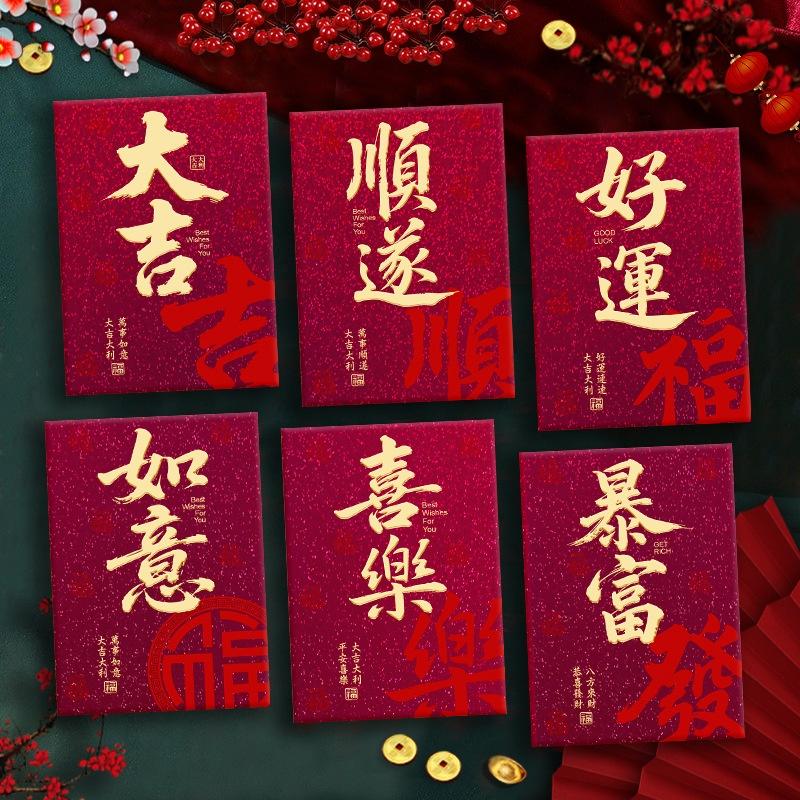 大吉
大吉
大利
Best
Wishes
For
You
吉
萬事如意
大吉大利
福
順遂
Best
Wishes
For
You
順
萬事順遂
大吉大利
福
好運
GOOD
LUCK
福
好運連連
大吉大利
福
如意
Best
Wishes
For
You
福
萬事如意
大吉大利
福
喜樂
Best
Wishes
For
You
樂
大吉大利
平安喜樂
福
暴富
GET
RICH
發
八方來財
恭喜發財
福